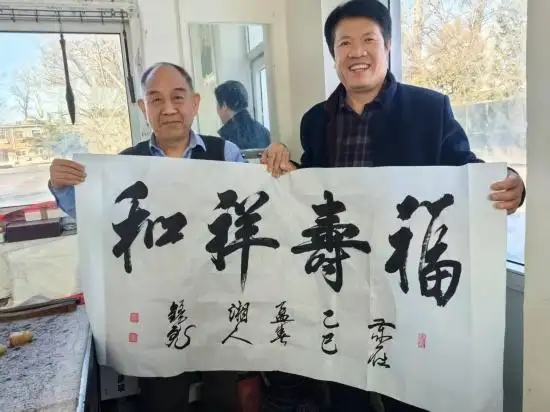 福壽祥和
乙巳
孟春
湘人